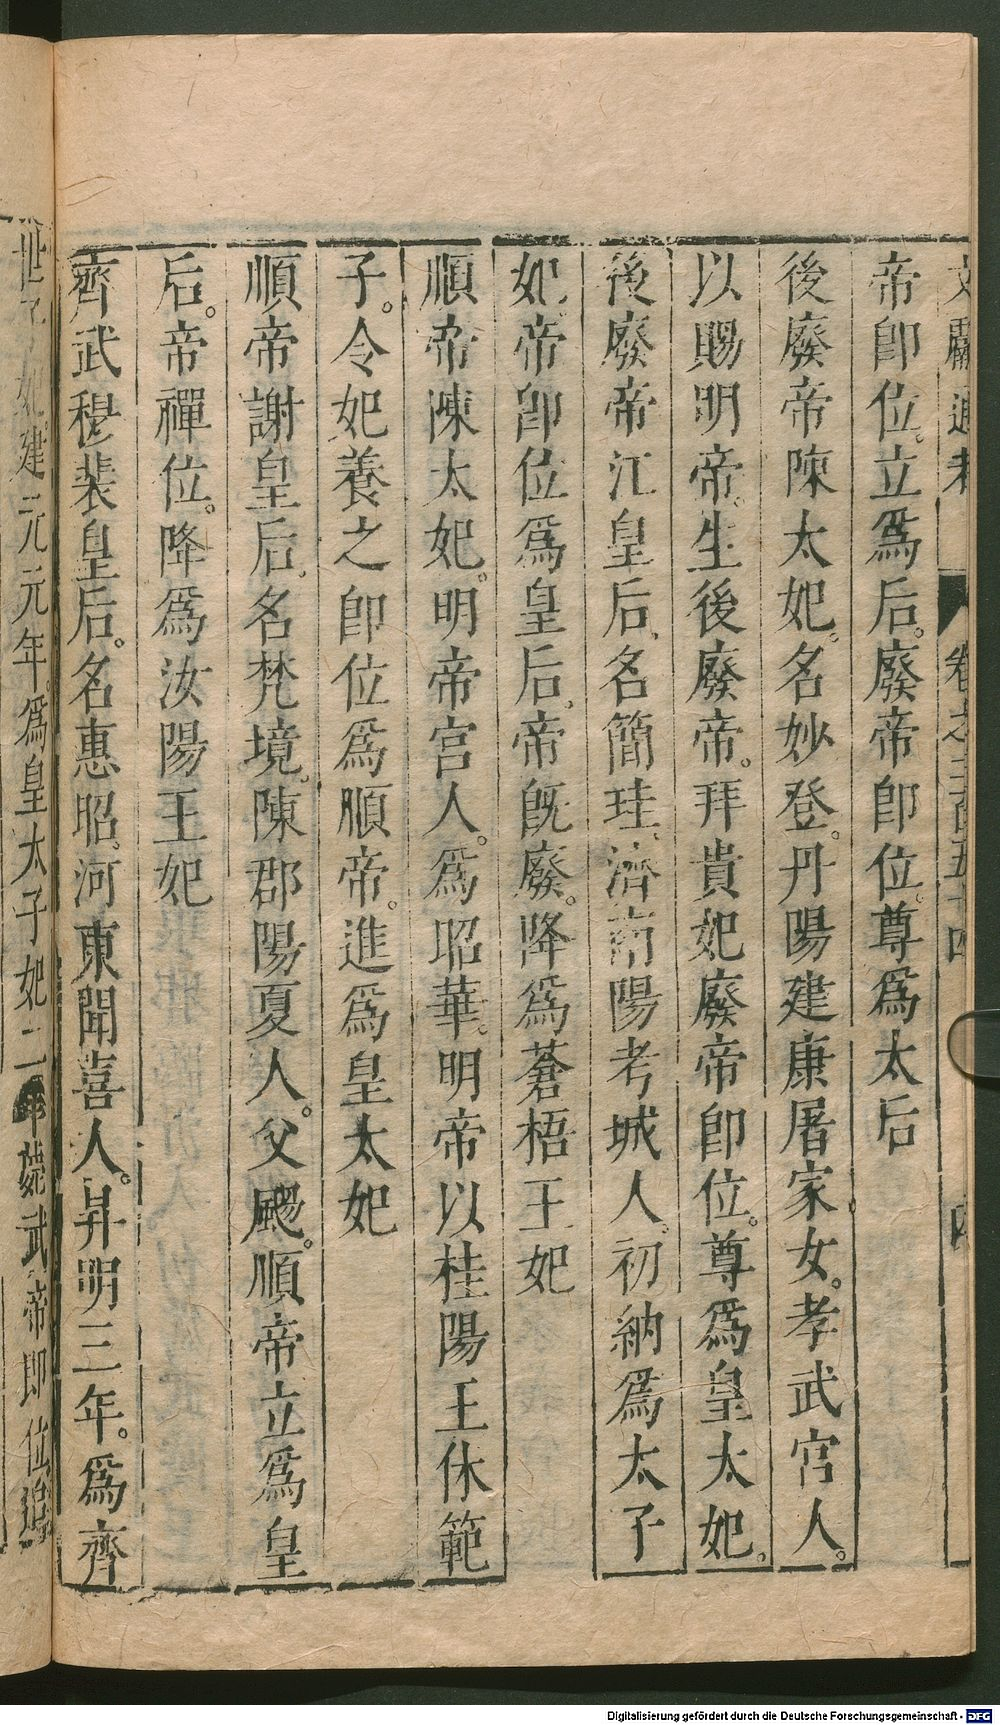 文獻通考 卷之二百五十四 四
帝卽位。立爲后。廢帝卽位。尊爲太后
後廢帝陳太妃。名妙登。丹陽建康屠家女。孝武宮人。
以賜明帝。生後廢帝。拜貴妃廢帝卽位。尊爲皇太妃。
後廢帝江皇后。名簡珪。濟南陽考城人。初納爲太子
妃。帝卽位爲皇后。帝旣廢。降爲蒼梧王妃
順帝陳太妃。明帝宮人。爲昭華。明帝以桂陽王休範
子。令妃養之卽位爲順帝。進爲皇太妃
順帝謝皇后。名梵境。陳郡陽夏人。父颺。順帝立爲皇
后。帝禪位。降爲汝陽王妃
齊武穆裴皇后。名惠昭。河東聞喜人。昇明三年。爲齊
世子妃。建元元年。爲皇太子妃二年薨武帝即位追
Digitalisierung gefördert durch die Deutsche Forschungsgemeinschaft - DFG